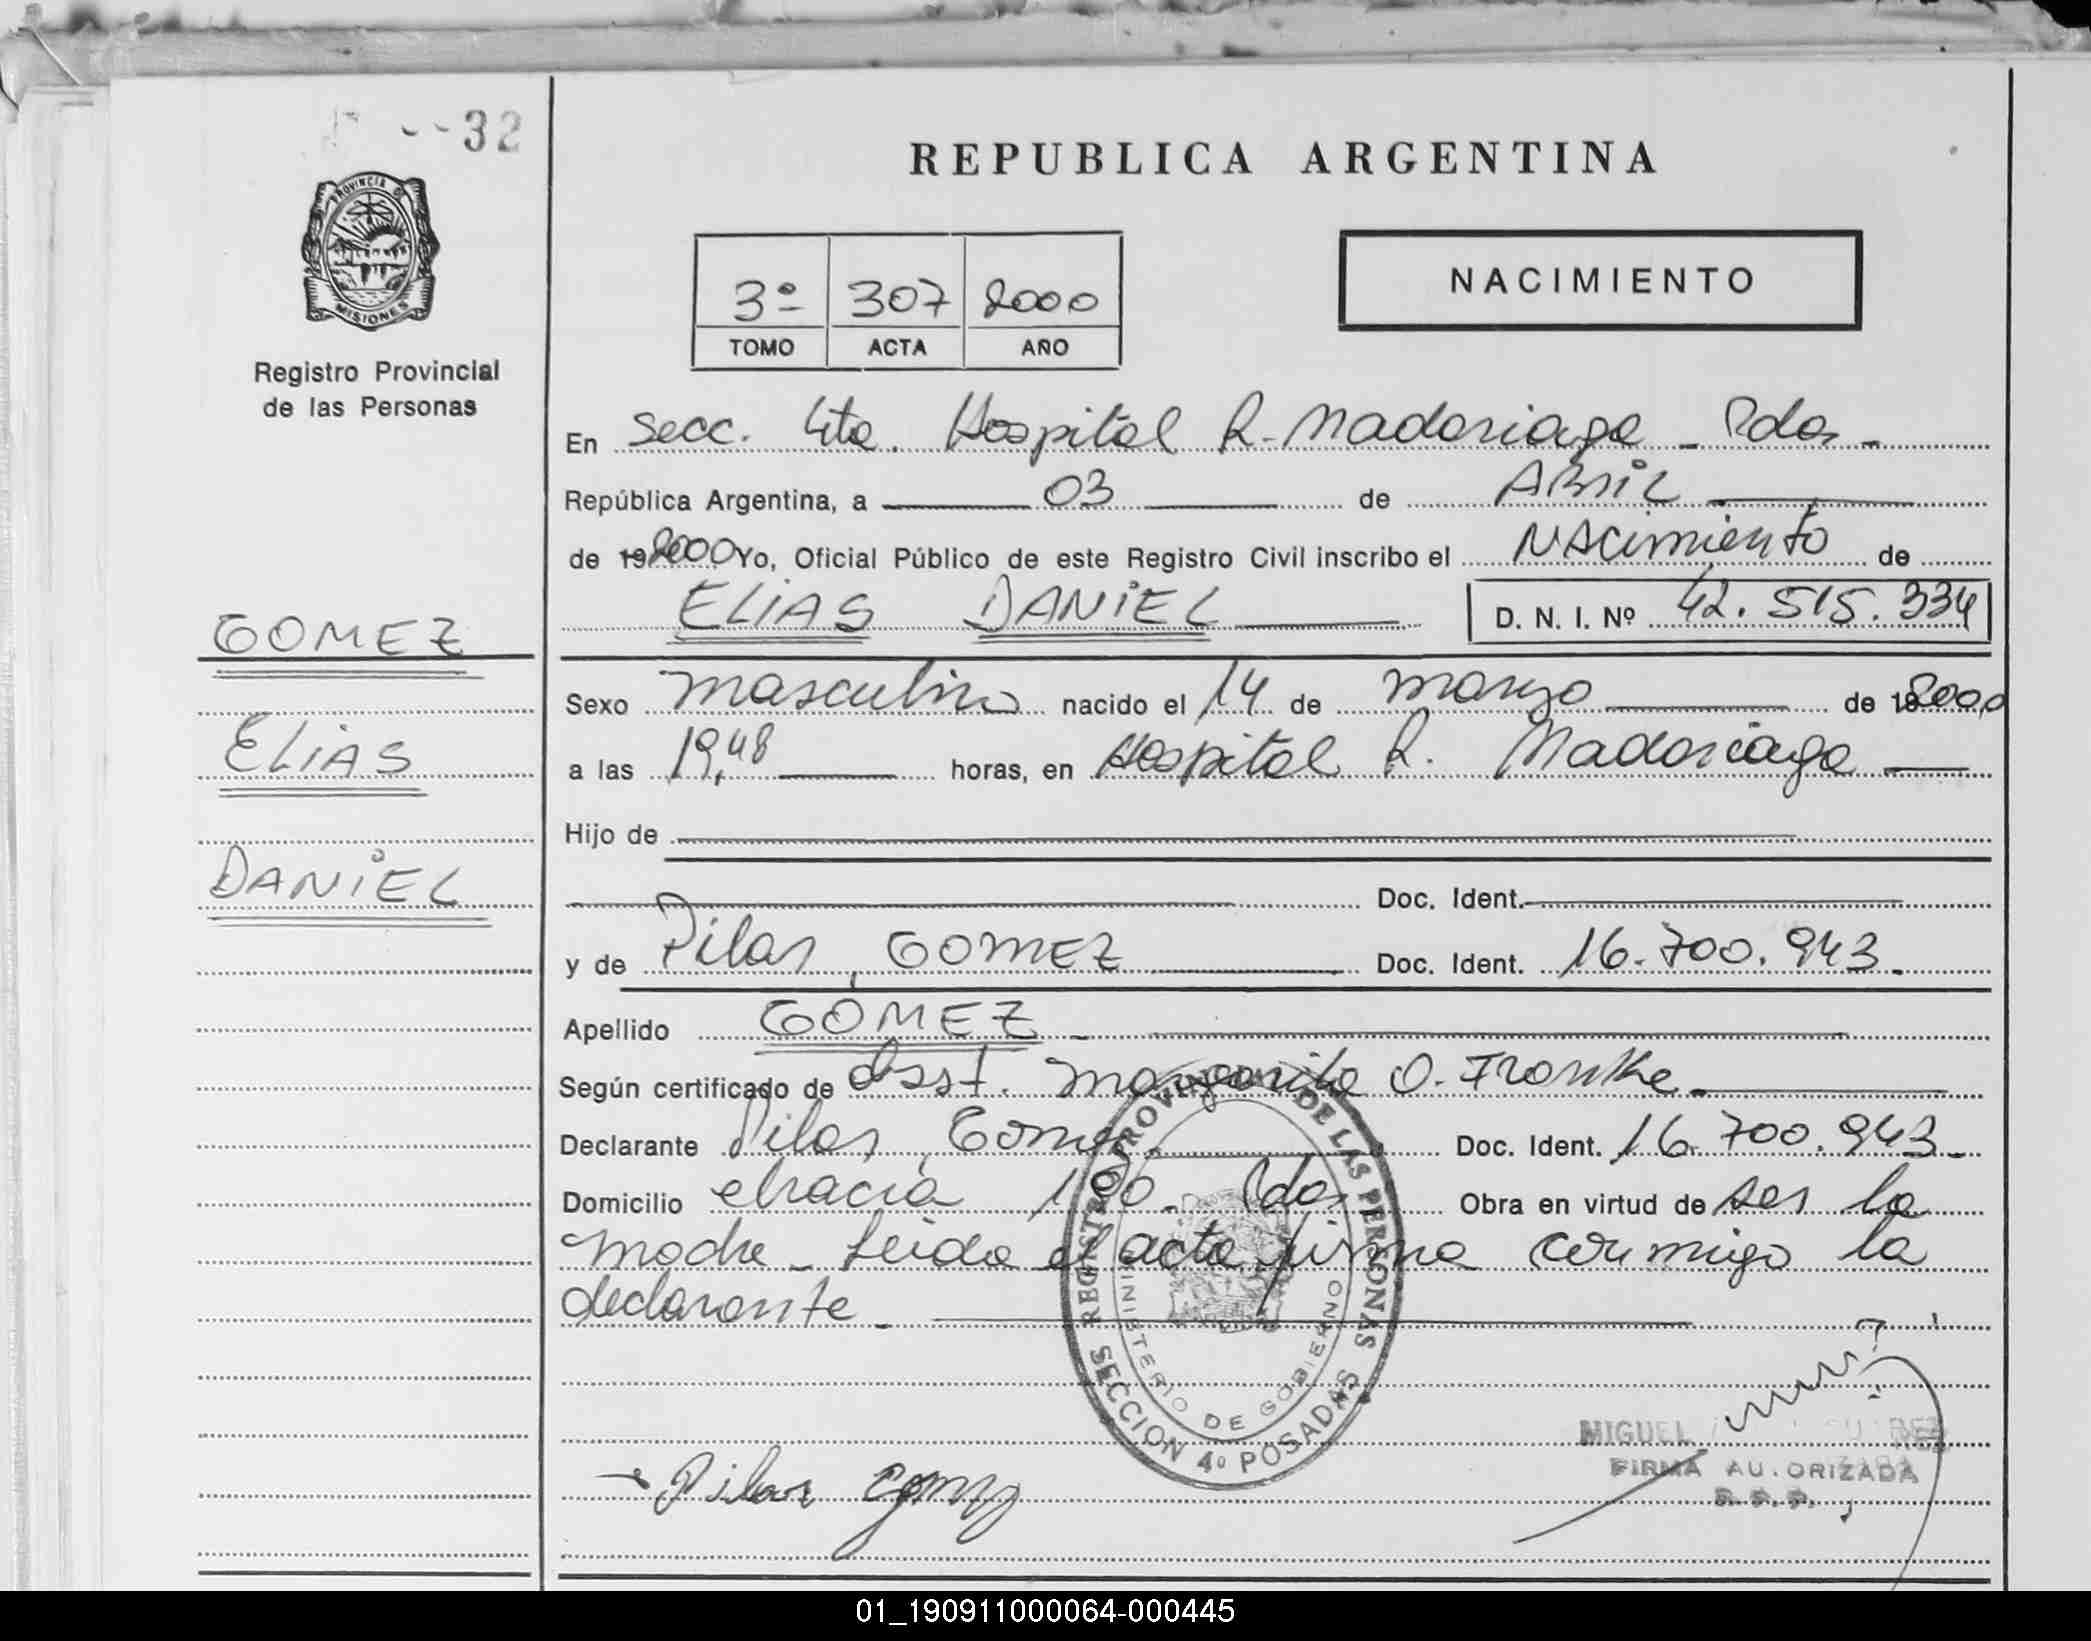 32
REPUBLICA ARGENTINA
PROVINCIA D
MISIONES
Registro Provincial
de las Personas
3º 307 2000
TOMO ACTA AÑO
NACIMIENTO
En Secc. 4ta. Hospital R. Madariaga - Pdas -
República Argentina, a 03 de ABRIL
de 19 2000 Yo, Oficial Público de este Registro Civil inscribo el NAcimiento de
ELIAS DANIEL D. N. I. Nº 42.515.334
GOMEZ
ELIAS
DANIEL
Sexo masculino nacido el 14 de marzo de 19 2000
a las 19,48 horas, en Hospital R. Madariaga
Hijo de
Doc. Ident.
y de Pilar, GOMEZ Doc. Ident. 16.700.943.
Apellido GOMEZ -
Según certificado de obst. Margarita O. Fronke
Declarante Pilar, Gomez. Doc. Ident. 16.700.943 -
Domicilio chacra 190. Pdas Obra en virtud de ser la
madre - Leida el acta firma conmigo la
declarante -
REGISTRO PROVINCIAL DE LAS PERSONAS
MINISTERIO DE GOBIERNO
SECCION 4º POSADAS
Pilar Gomez
MIGUEL
FIRMA AUTORIZADA
R. P. P.
01_190911000064-000445